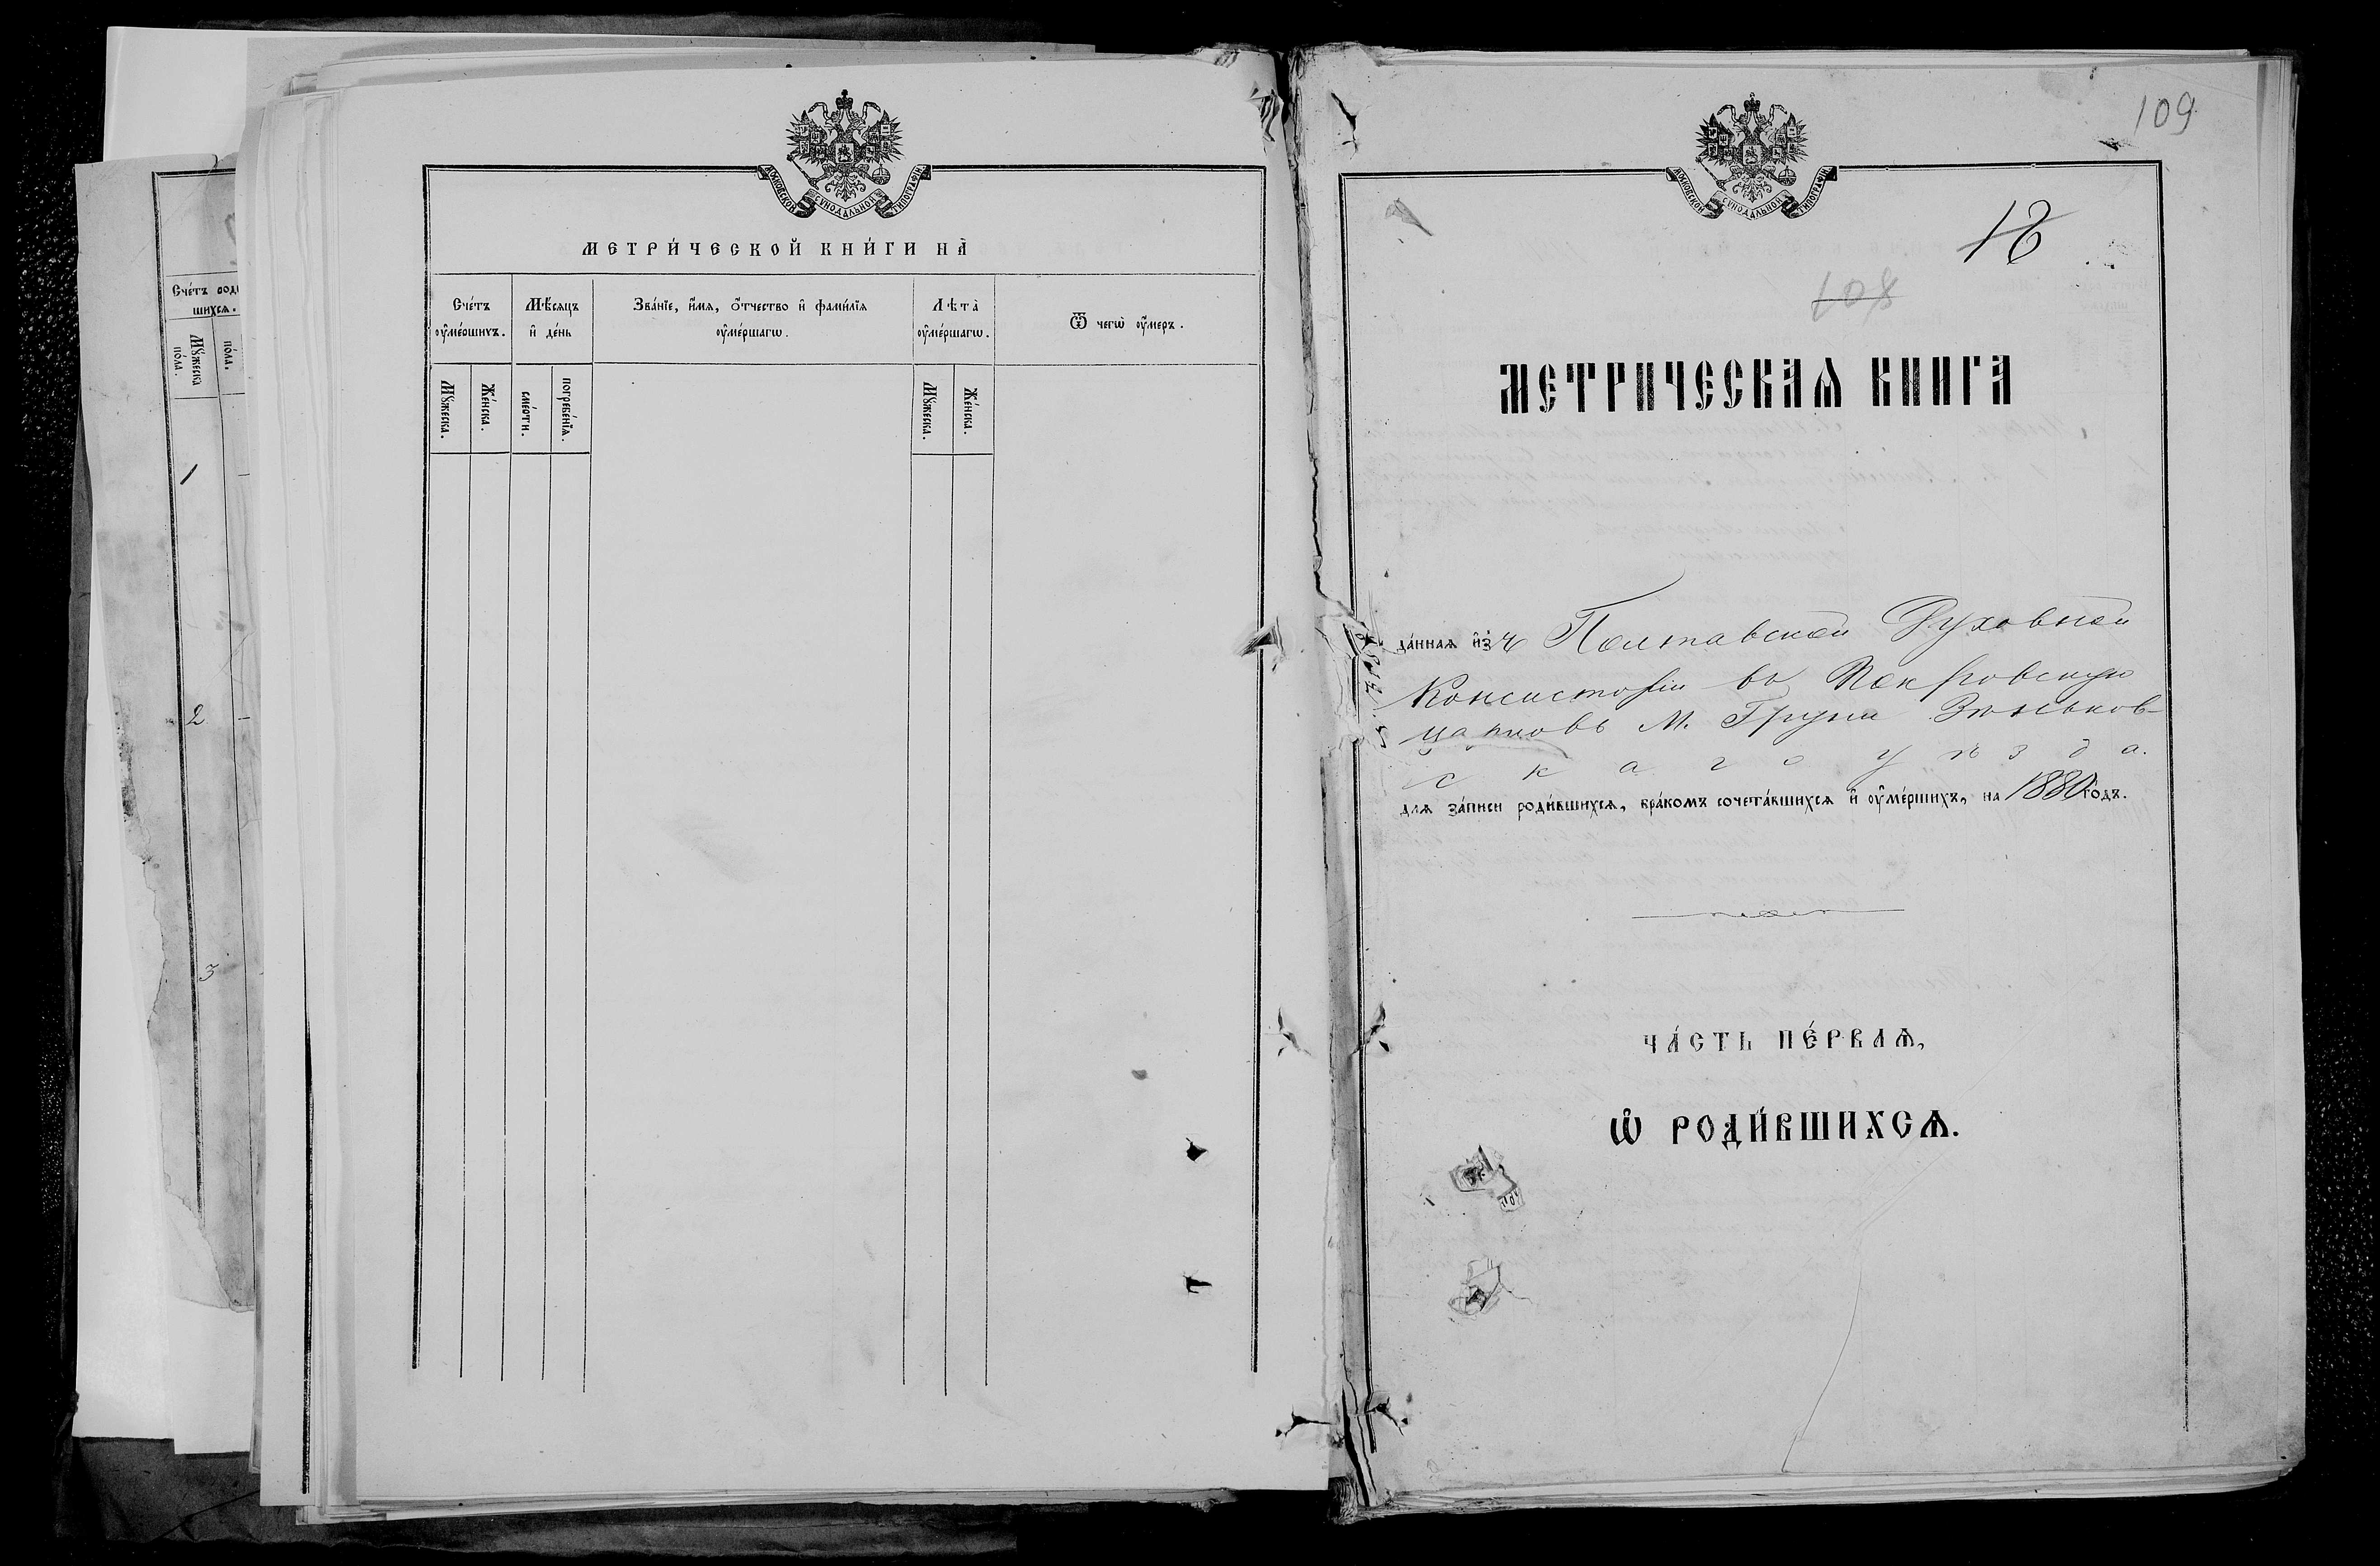 Счéтъ роди
шихсѧ.
Мꙋжеска
пóла.
пóла.
1
2
3
МОСКОВСКОЙ СѴНОДАЛЬНОЙ ТИПОГРАФІИ
МЕТРИ́ЧЕСКОЙ КНИ́ГИ НА̀
Счéтъ
ᲂу҆мéршихъ.
Мѣ́сѧцъ
и҆ дéнь
Звáнїе, и҆́мѧ, ѻ҆́тчество и҆ фами́лїѧ
ᲂу҆мéршагѡ.
Лѣ̑та̀
ᲂу҆мéршагѡ.
Ѿ чегѡ̀ ᲂу҆́меръ.
Мꙋ́жеска.
Жéнска.
смéрти.
погребéнїѧ.
Мꙋ́жеска.
Жéнска.
109
МОСКОВСКОЙ СѴНОДАЛЬНОЙ ТИПОГРАФІИ
18
108
МЕТРИЧЕСКАѦ КНИГА
дáннаѧ и҆зъ Полтавской Духовной
Консисторіи въ Покровскую
церковь М. Груни Зѣньков-
скаго уѣзда.
длѧ зáписи роди́вшихсѧ, брáкомъ сочетáвшихсѧ и҆ ᲂу҆мéршихъ, на 1880 годъ.
ЧÁСТЬ ПÉРВАѦ,
Ѡ҆ РОДИ́ВШИХСѦ.